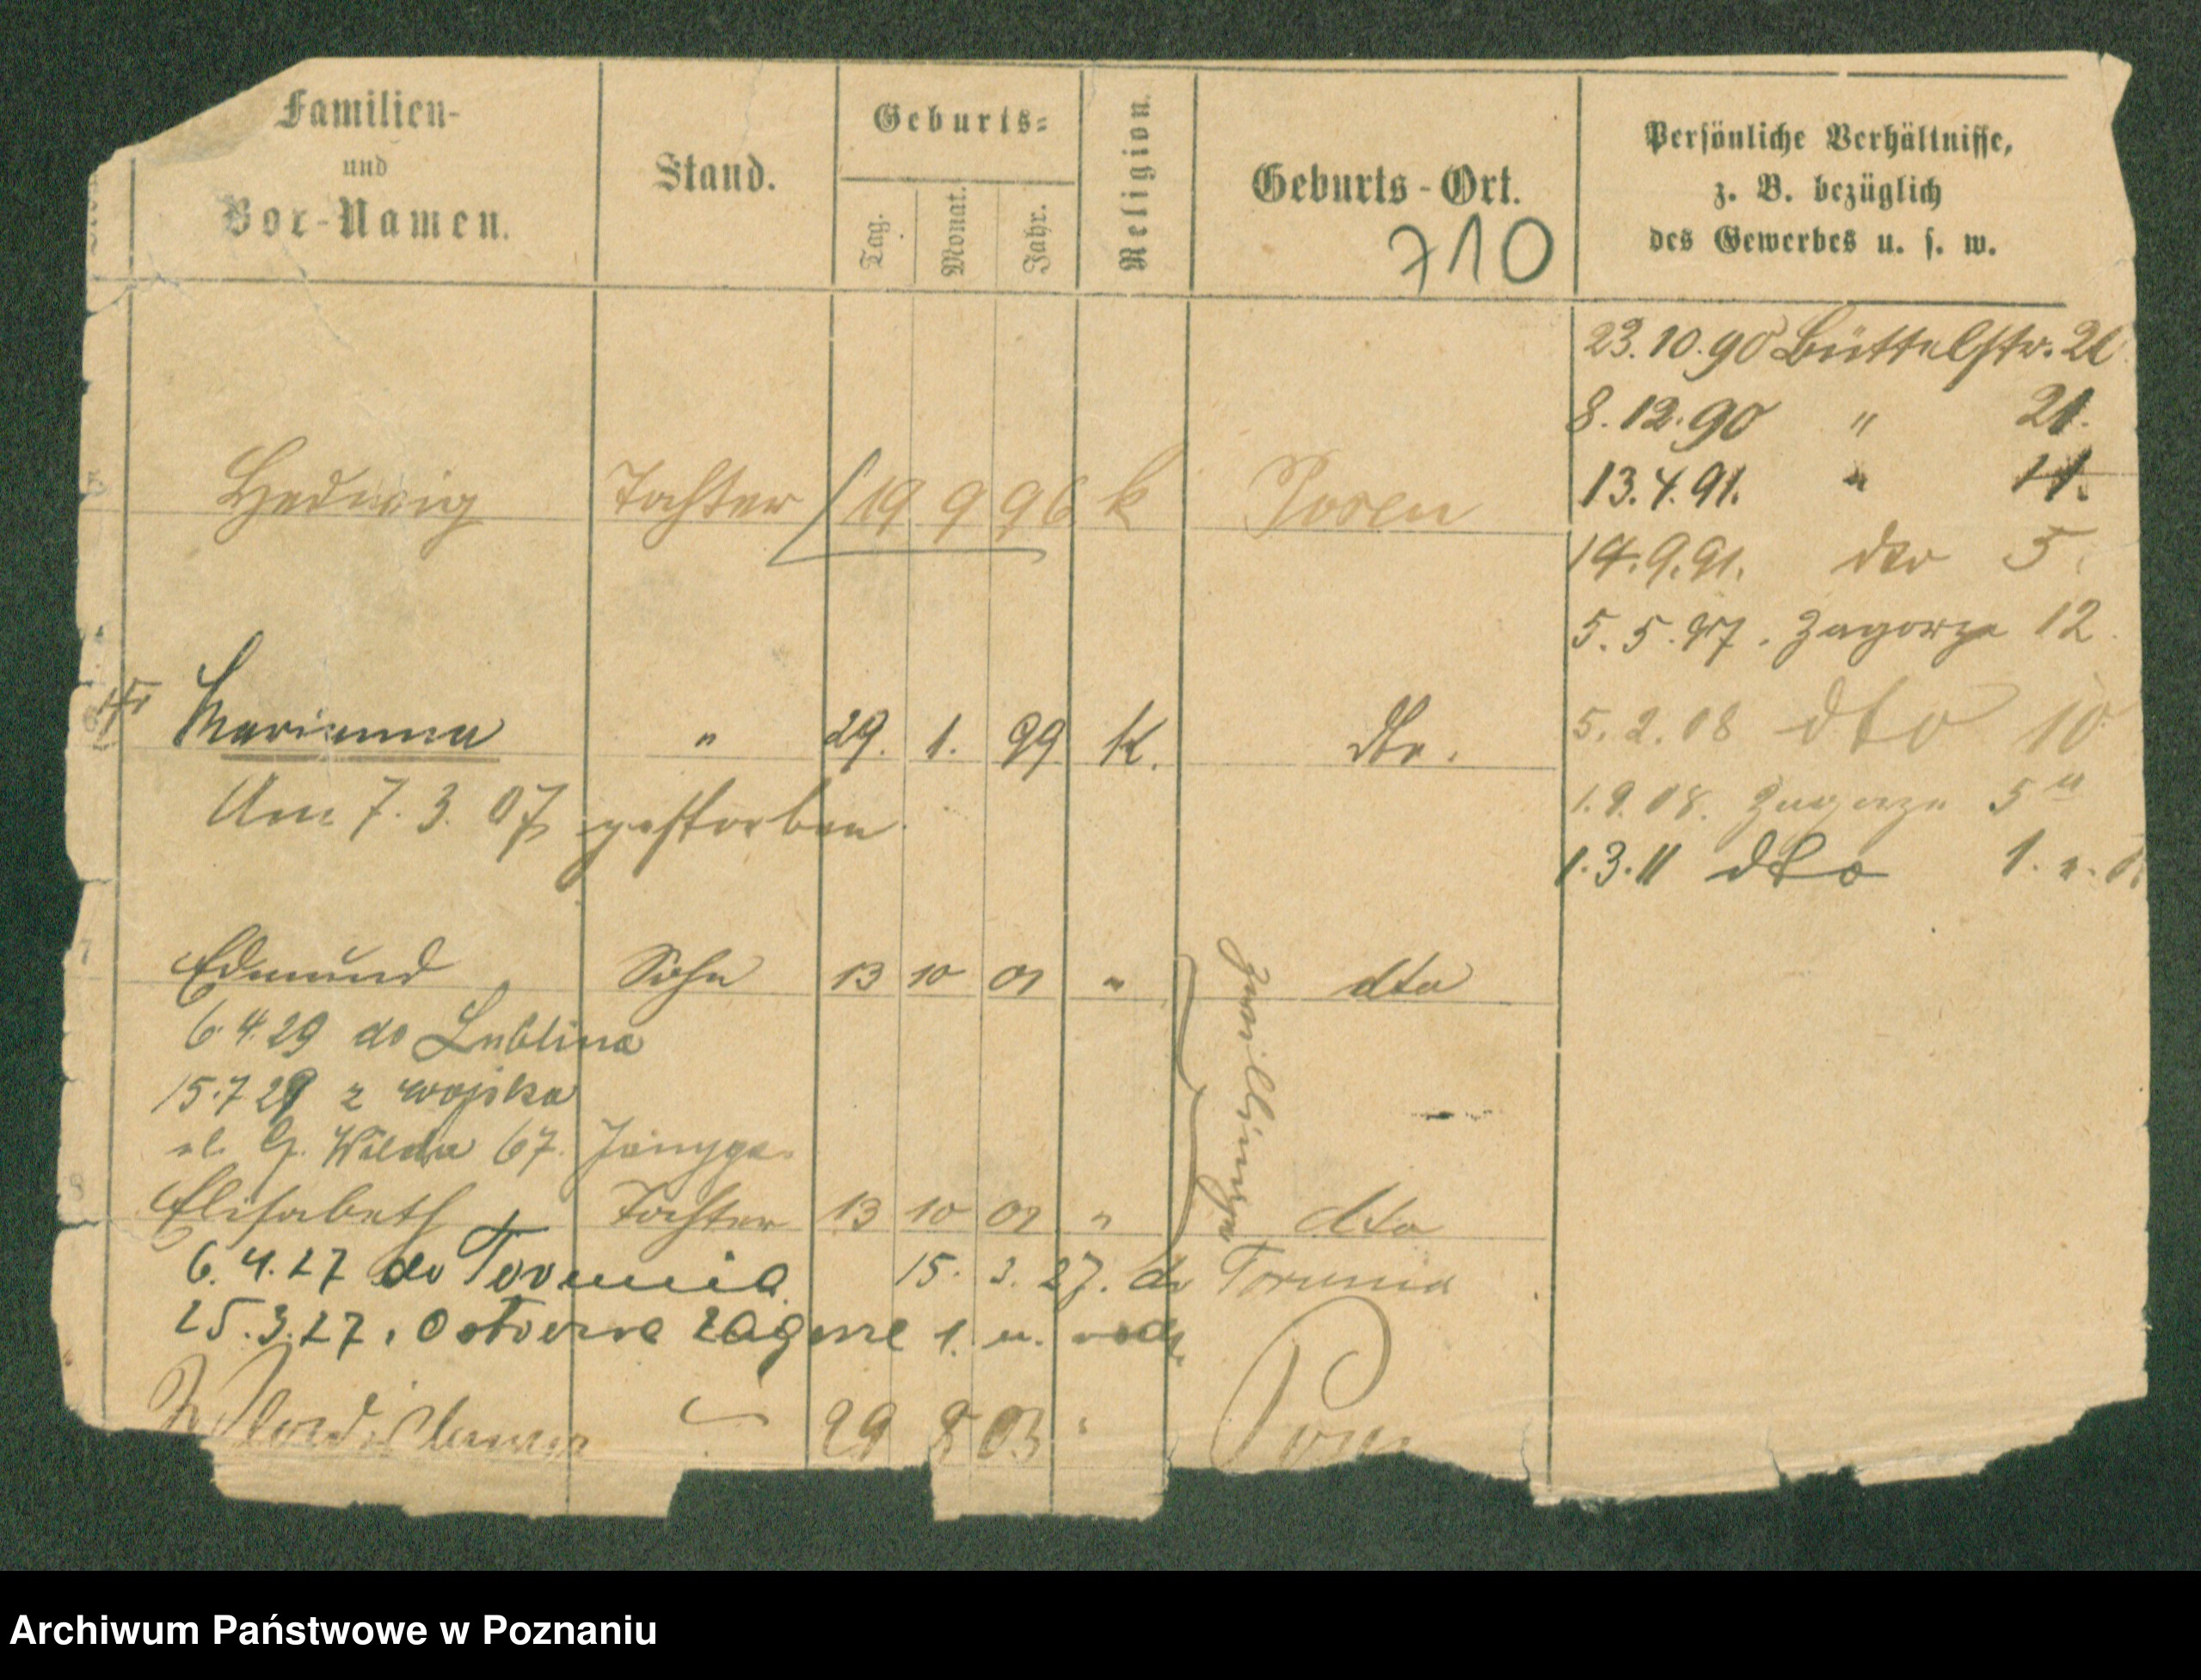 Familien-
und
Vor-Namen.
Stand.
Geburts-
Tag.
Monat.
Jahr.
Religion.
Geburts-Ort.
710
Persönliche Verhältnisse,
z. B. bezüglich
des Gewerbes u. s. w.
23.10.90 Büttelstr. 21
8.12.90 " 21.
13.4.91. " 11.
14.9.91. dto 5.
5.5.97. Zagorze 12
5.2.08 dto 10
1.9.08. Zagorze 5
1.3.11 dto 1.
Hedwig Tochter 19 9 96 k Posen
Marianna " 29. 1. 99 K. dto.
Am 7.3.07 gestorben
Edmund Sohn 13 10 01 " dto
6.4.29 do Lublina
15.7 29 z wojska
G. Wilda 67.
Zwillinge
Elisabeth Tochter 13 10 01 " dto
6.4.27 do Torunia 15. 3. 27. do Torunia
25.3.27. Zagorze 1.
29 8 03 "
Archiwum Państwowe w Poznaniu